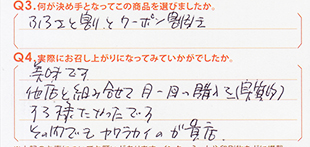 Q3.何が決め手となってこの商品を選びましたか。
ふるさと割とクーポン割引き
Q4.実際にお召し上がりになってみていかがでしたか。
美味です
他店と組み合せで月一月の購入を(実質的)
する様になったです
その内でもヤワラカイのが貴店